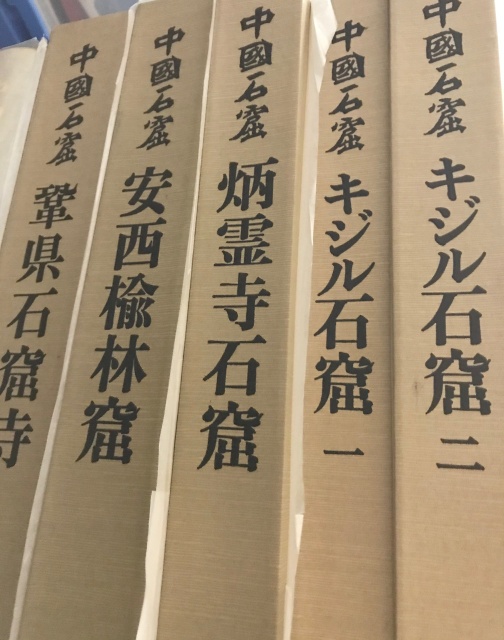 中國石窟 鞏県石窟寺
中國石窟 安西楡林窟
中國石窟 炳霊寺石窟
中國石窟 キジル石窟 一
中國石窟 キジル石窟 二